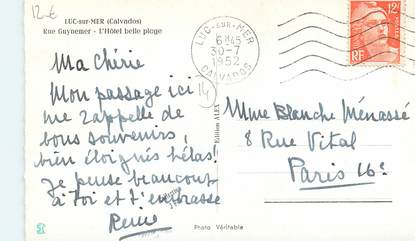 12 €
LUC-sur-MER (Calvados)
Rue Guynemer - L'Hôtel belle plage
LUC-SUR-MER
6H45
30-7
1952
CALVADOS
12F
RF
14
Ma Chérie
Mon passage ici
me rappelle de
bons souvenirs,
bien éloignés hélas!
Je pense beaucoup
à toi et t'embrasse
Reine
Edition ALEX
Mme Blanche Ménassé
8 Rue Vital
Paris 16e
Photo Véritable